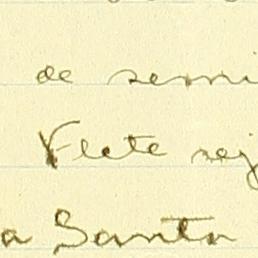 de semi
Flete sej
a Santa